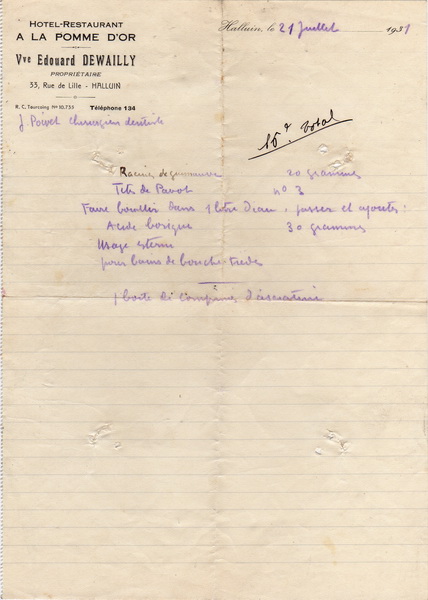 HOTEL-RESTAURANT
A LA POMME D'OR
Vve Edouard DEWAILLY
PROPRIÉTAIRE
33, Rue de Lille - HALLUIN
R. C. Tourcoing Nº 10.733 Téléphone 134
Halluin, le 21 Juillet 1931
J. Chirurgien dentiste
Racines de guimauve 20 grammes
Tête de Pavot nº 3
Faire bouillir dans 1 litre d'eau, passer et ajouter :
Acide borique 30 grammes
Usage externe
pour bains de bouche tièdes
1 boite de comprimés